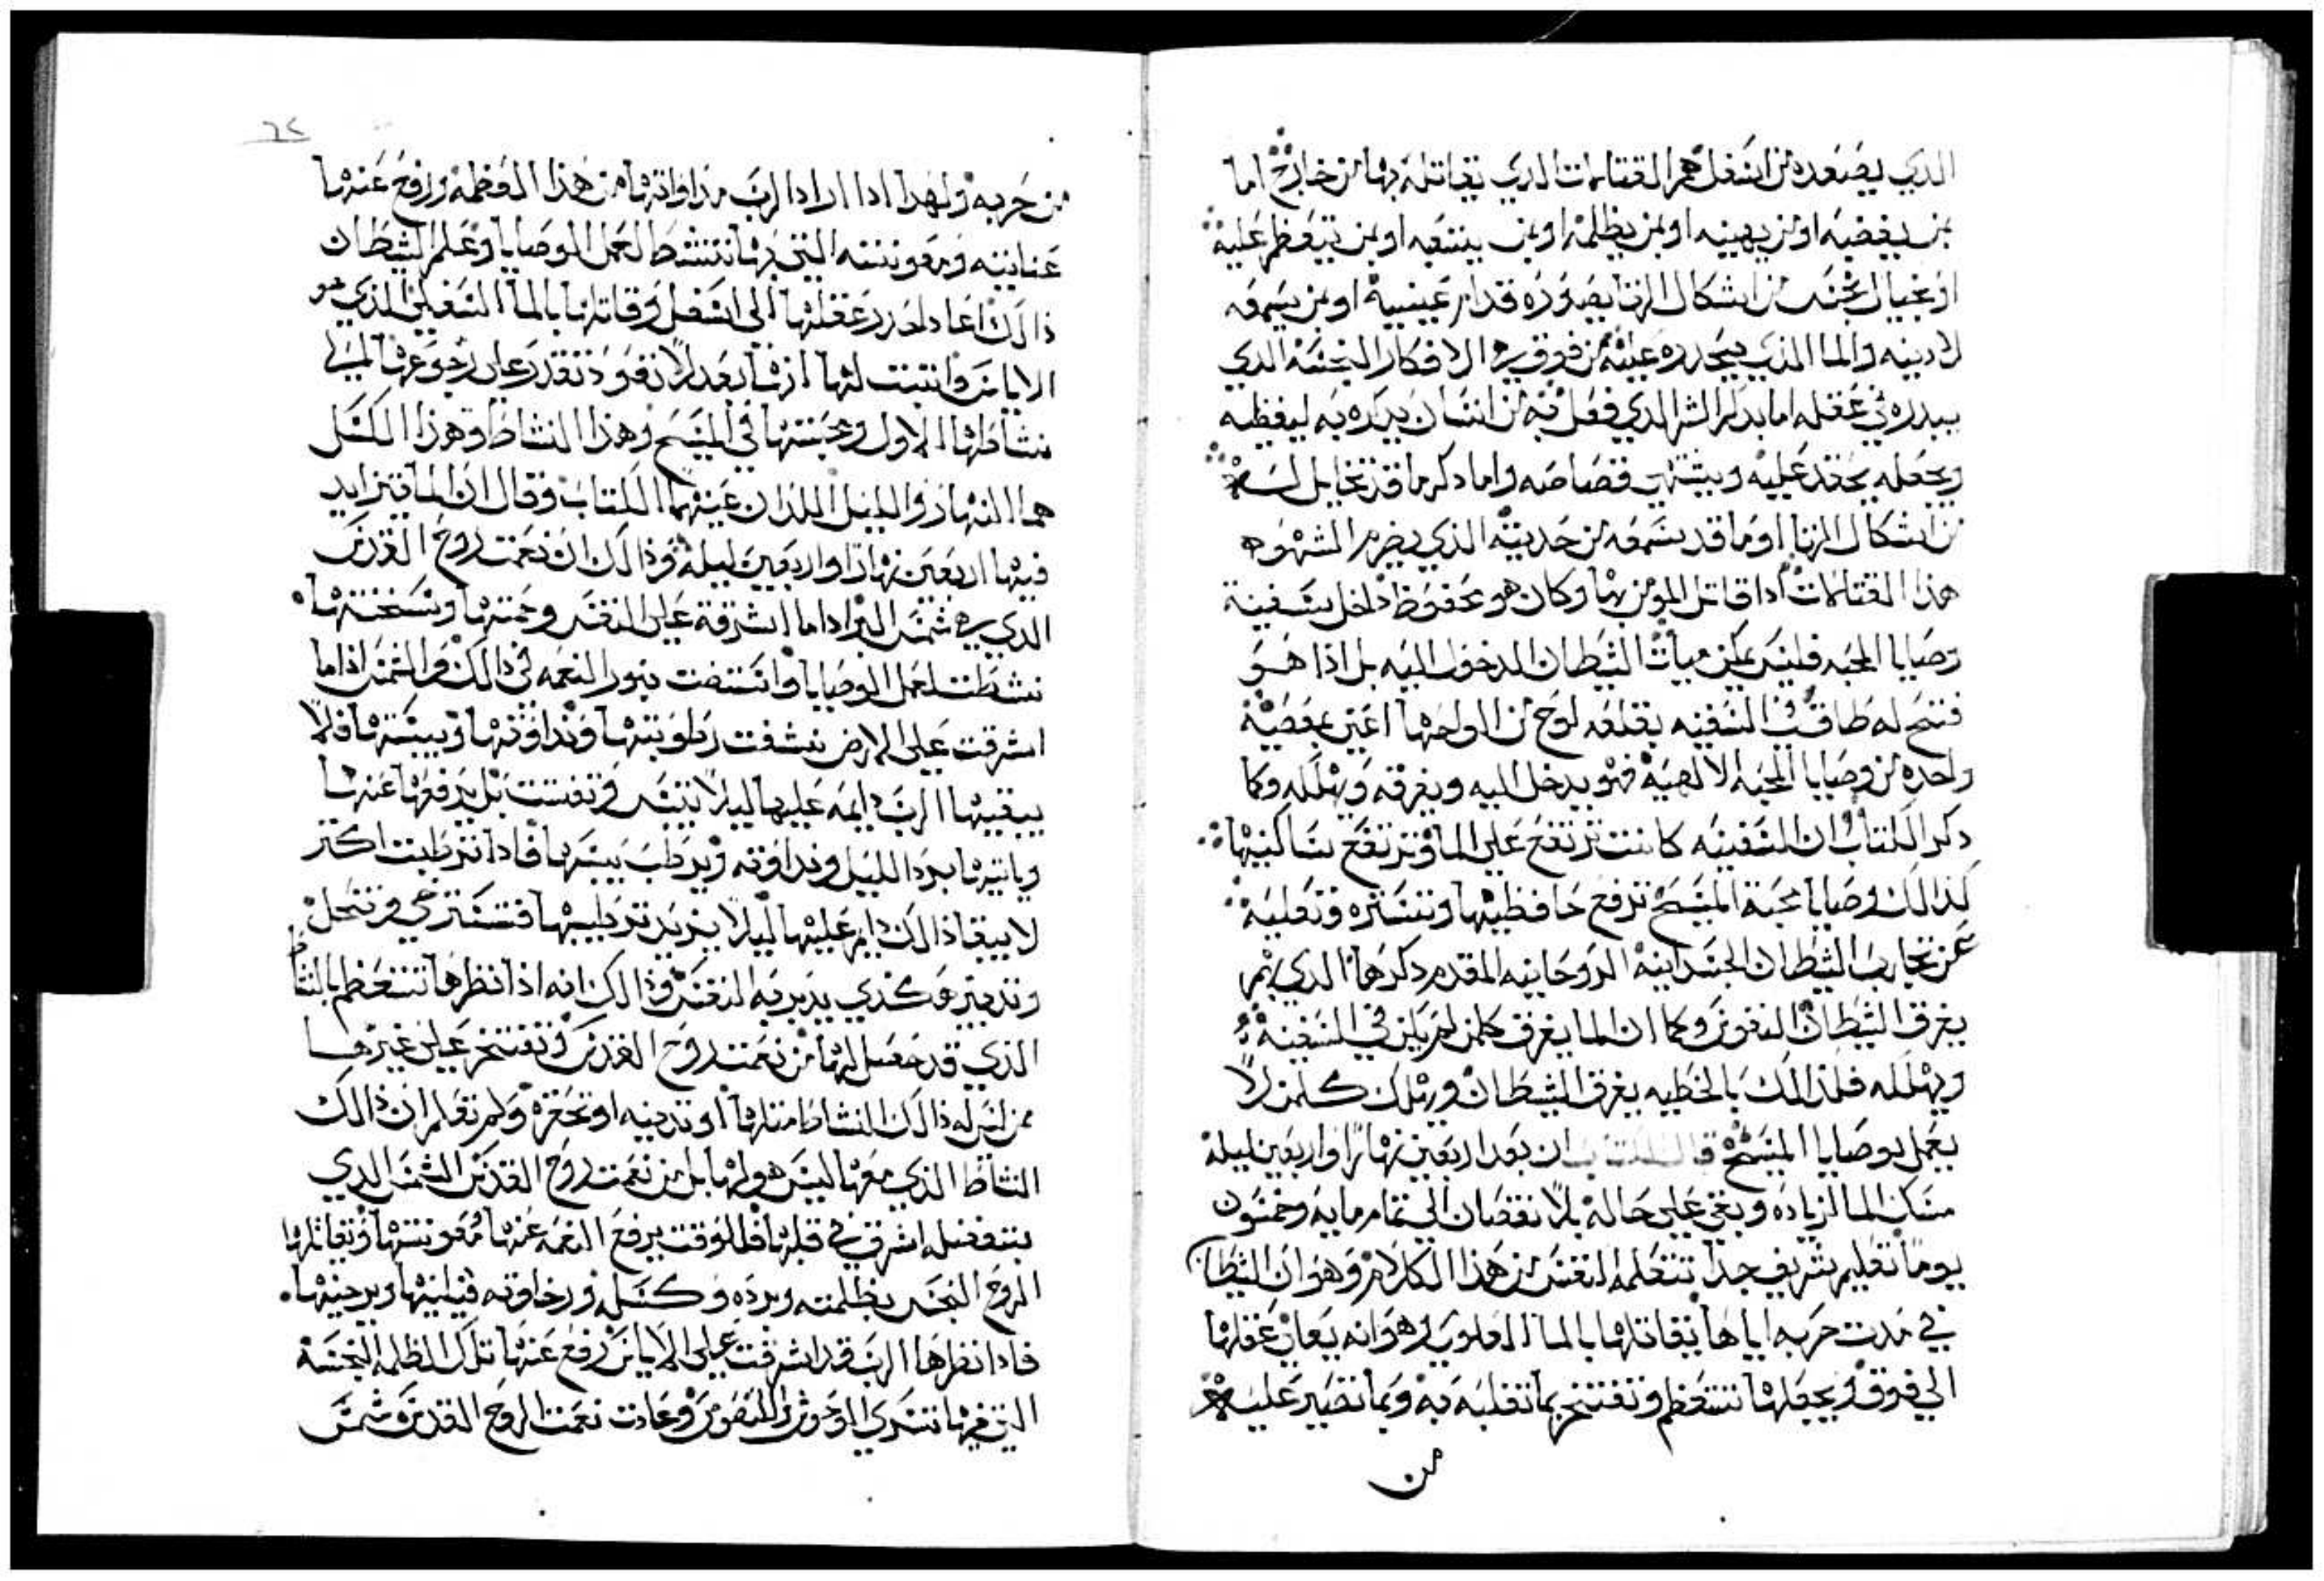 الدي يصعده من اسفل هم القتالات الدي يقاتله بها من خارج اما
بمن يبغضه او بمن يهينه او بمن يظلمه او بمن يشتمه او بمن يتعظم عليه
او بخيال نجس من اشكال الزنا يصوره قدام عينيه او بمن يسمعه
لادينه والما الذي يحدره عليه من فوق هي الافكار النجسه الدي
يبدره في عقله اما بدكر الشر الدي فعل فيه من انسان يدكره به ليغظيه
ويجعله يحقد عليه ويشتهي قصاصه واما دكر ما قد تخايل له
من اشكال الزنا او ما قد يسمعه من حديثه الذي يضرم الشهوه
هذا القتالات اذا قاتل المومن بها وكان هو محفوظ داخل سفينة
وصايا المحبه فليس يمكن ميات الشيطان الدخول اليه بل اذا هو
فتح له طاقه في السفينه بقلعه لوح من الواحها اعني بمعصية
واحده من وصايا المحبه الالهيه فهو يدخل اليه ويغرقه ويهلكه وكما
دكر الكتاب ان السفينه كانت ترتفع على الما وترتفع بساكنيها
كذالك وصايا محبة المسيح ترفع حافظيها وتستره وتعليه
عن تجارب الشيطان الجسدانيه الروحانيه المقدم دكرها الدي بهم
يغرق الشيطان النفوس وكما ان الما يغرق كلمن لم يكن في السفينه
ويهلكه فلذالك بالخطيه يغرق الشيطان ويهلك كلمن لا
يعمل بوصايا المسيح قال الكتاب ان بعد اربعين نهارا واربعين ليله
سكن الما الزياده وبقي على حاله بلا نقصان الي تمام مايه وخمسون
يوما تعليم شريف جدا تتعلمه النفس من هذا الكلام وهو ان الشيطان
في مدت حربه اياها يقاتلها بالما العلوي هو انه يعان عقلها
الي فوق ويجعلها تتعظم وتفتخر بما تغلبه به وبما تصير عليه
من
٦٢
من حربه ولهدا ادا اراد الرب مداواتها من هذا العظمة ورفع عنها
عنايته ومعونته التي بها تنشط لعمل الوصايا وعلم الشيطان
ذالك اعاد عقلها الي اسفل وقاتلها بالما السفلي الذي هو
الاياس وانتبت لها انها بعد لا تعود تقدر على رجوعها الي
نشاطها الاول ومحبتها في المسيح وهذا النشاط وهذا الكسل
هما النهار والليل اللذان عينهما الكتاب وقال ان الما تزايد
فيها اربعين نهارا واربعين ليله وذالك ان نعمت روح القدس
الدي هي شمس البر اداما اشرقة على النفس وحمتها وسخنتها
نشطت لعمل الوصايا وانستضت بنور النعمه في دالك والشمس اذا ما
اشرقت على الارض نشفت رطوبتها ونداوتها ويبستها فلا
يبقيها الرب دايمه عليها ليلا تيبس وتفتت بل يرفعها عنها
وياتيها ببرد الليل ونداوته ويرطب يبسها فادا ترطبت اكتر
لا يبقا ذالك دايم عليها ليلا يزيد ترطيبها فتسترخي وتنحل
وتدبير هكذي يدبر به النفس وذالك انه اذا نظرها تتعظم بالنشاط
الذي قد حصل لها من نعمت روح القدس وتفتخر على غيرها
ممن ليس له ذالك النشاط مثلها او تدينه او تحقره ولم تعلم ان ذالك
النشاط الذي معها ليس هو لها بل من نعمت روح القدس الشمس الدي
بتفضله اشرق في قلبها فللوقت يرفع النعمه عنها معونتها ويقاتلها
الروح النجس بظلمته وبرده وكسله ورخاوته فيلينها ويرخيها
فادا نظرها الرب قد اشرفت على الاياس رفع عنها تلك الظلمه النجسه
التي فيها تنسري الوحوش النفوس وعادت نعمت الروح القدس شمس